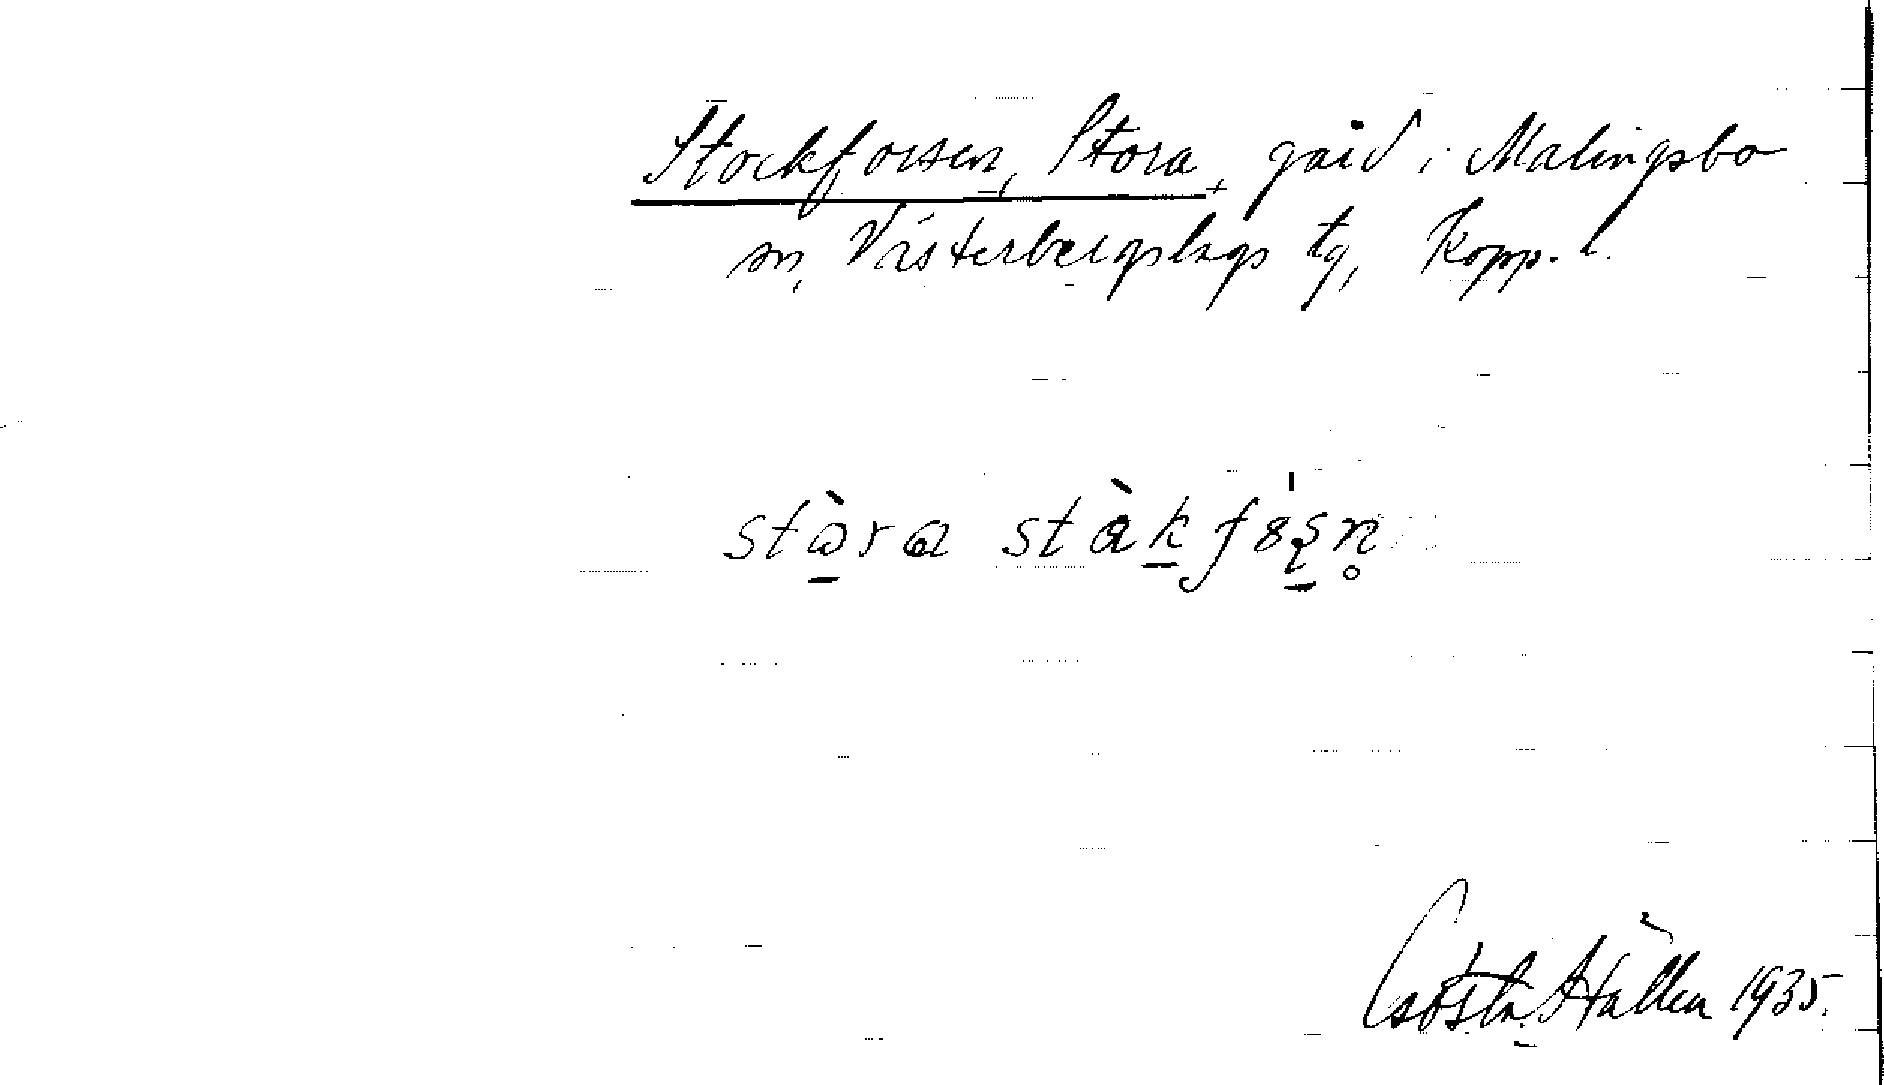 Stockforsen, Stora, gård i Malingsbo
sn, Västerbergslags tg, Kopp. l.
Gösta Hållen 1935.